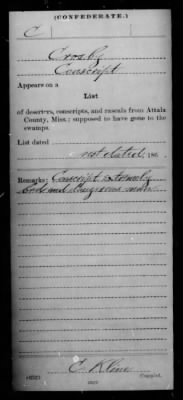 (CONFEDERATE.)
C
Crosby
Conscript
Appears on a
List
of deserters, conscripts, and rascals from Attala
County, Miss.; supposed to have gone to the
swamps.
List dated
not dated, 186
Remarks: Conscript & terribly
bad and dangerous man.
E. Kline
Copyist.